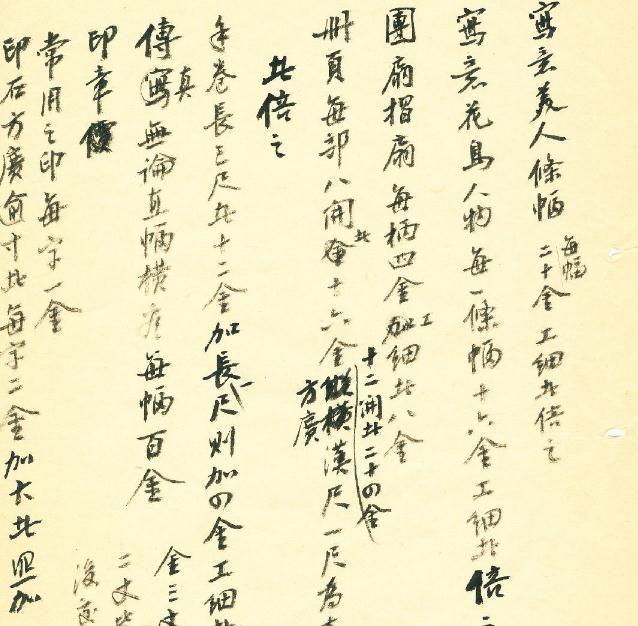 寫意美人條幅每幅二十金工細者倍之
寫意花鳥人物每一條幅十六金工細者倍之
團扇摺扇每柄四金工細者八金
冊頁每部八開者十六金十二開者二十四金縱橫方廣漢尺一尺為
者倍之
手卷長三尺者十二金加長一尺則加四金工細者
傳真無論直幅橫每幅百金
金三
二丈
印章
常用之印每字一金
印石方廣逾寸者每字二金加大者照加